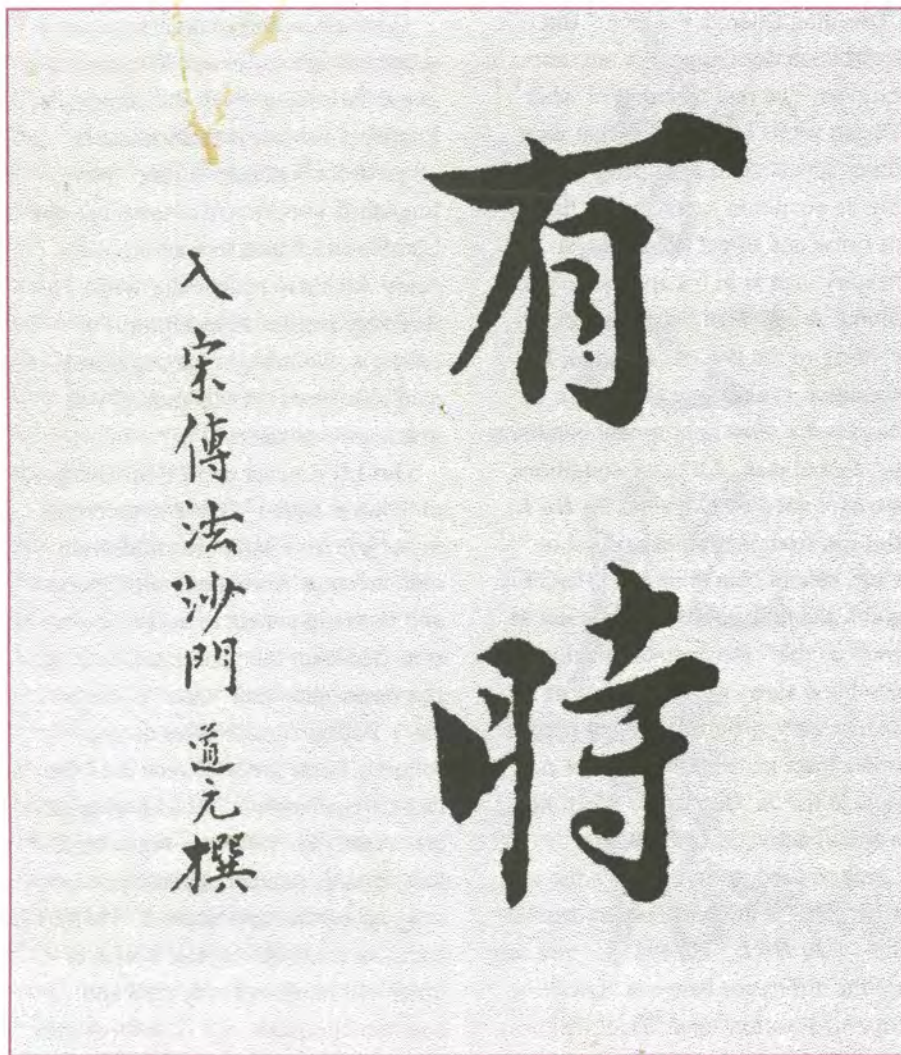 有時
入宋傳法沙門 道元撰